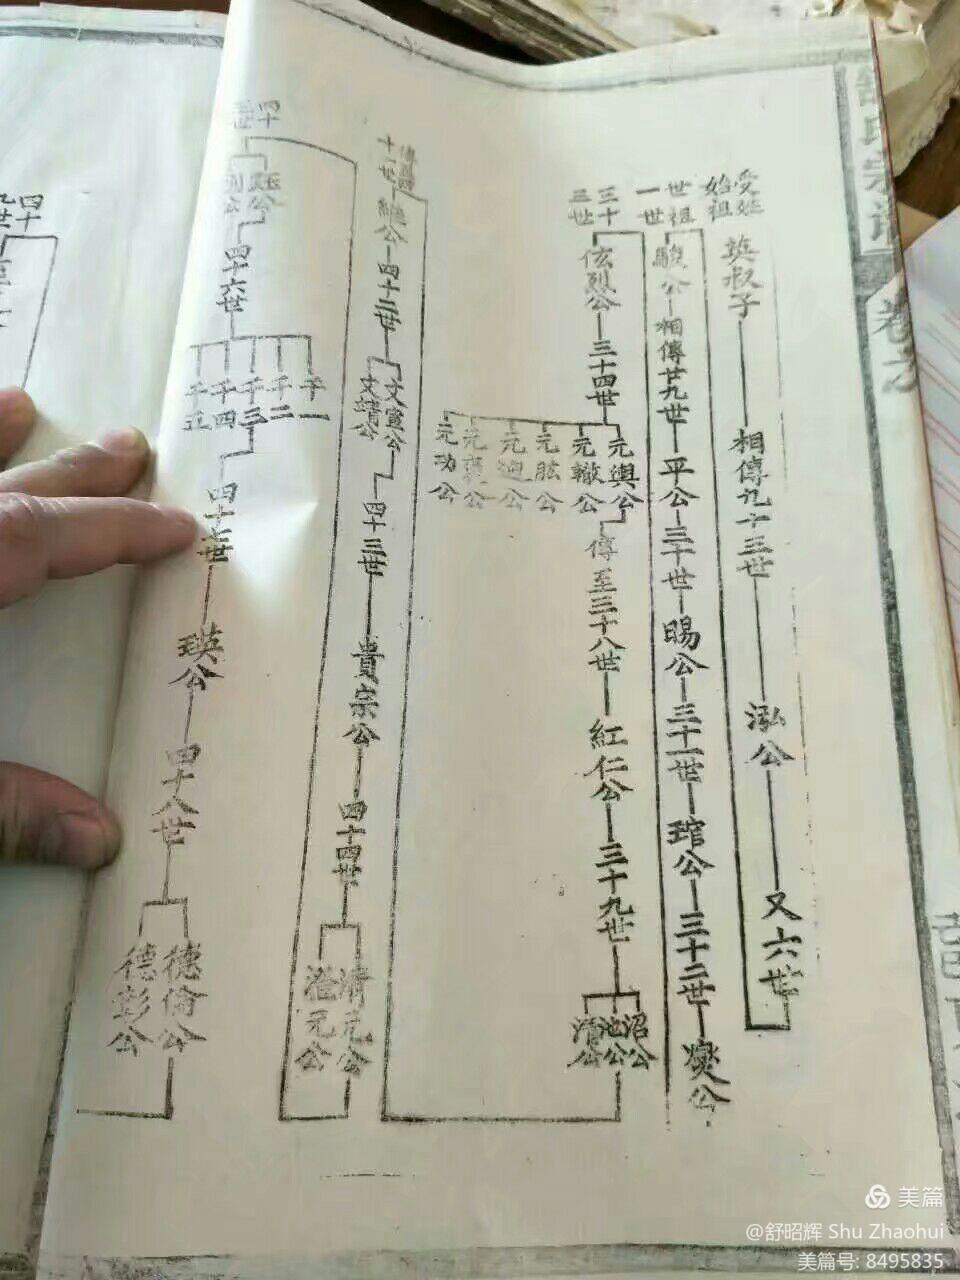 氏宗譜
卷之
受姓
始祖
英叔子
相傳九十三世
泓公
又六世
世祖
一世
駿公
相傳廿九世
平公
三十世
賜公
三十一世
琯公
三十二世
燠公
三十
三世
伭烈公
三十四世
元輿公
元轍公
元肱公
元迥公
元功公
傳至三十八世
紅仁公
三十九世
沼公
池公
濆公
十一世
繼公
四十二世
文宣公
文靖公
四十三世
貴宗公
四十四世
清元公
澄元公
四十
五世
鈺公
釗公
四十六世
千一
千二
千三
千四
千五
四十七世
瑛公
四十八世
德倫公
德彭公
四十
九世
己巳
美篇
@舒昭辉 Shu Zhaohui
美篇号: 8495835